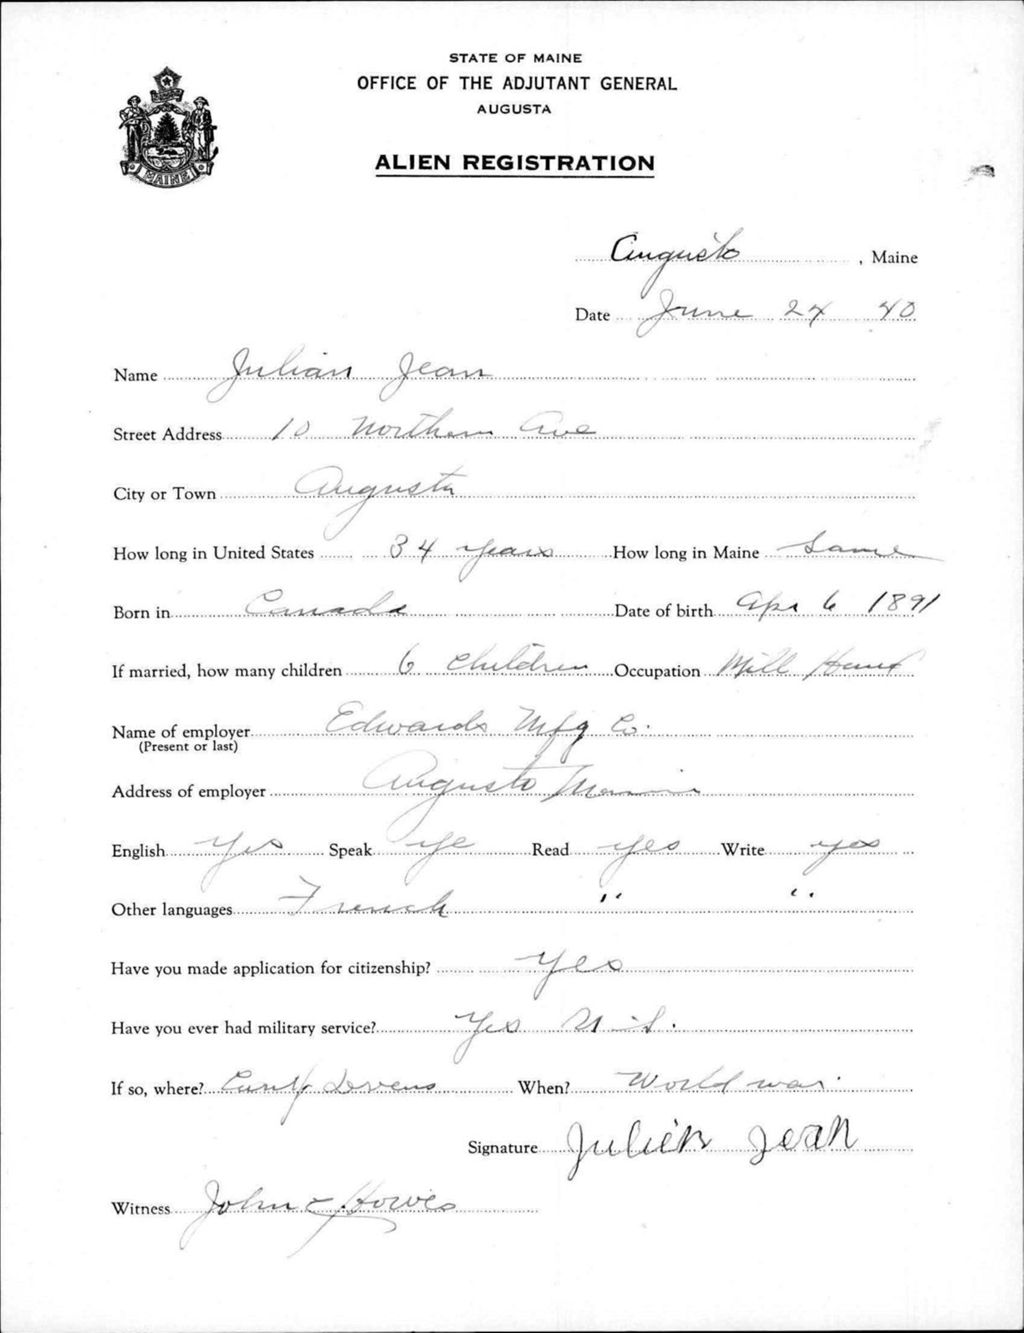 STATE OF MAINE
OFFICE OF THE ADJUTANT GENERAL
AUGUSTA
ALIEN REGISTRATION
MAINE
Augusta, Maine
Date June 24 40
Name Julian Jean
Street Address 10 Northern Ave
City or Town Augusta
How long in United States 34 years How long in Maine Same
Born in Canada Date of birth Apr 6 1891
If married, how many children 6 children Occupation Mill Hand
Name of employer Edwards Mfg Co.
(Present or last)
Address of employer Augusta Maine
English Yes Speak ye Read yes Write yes
Other languages French " "
Have you made application for citizenship? Yes
Have you ever had military service? Yes U.S.
If so, where? Camp Devens When? World war.
Signature Julien Jean
Witness John E Howes